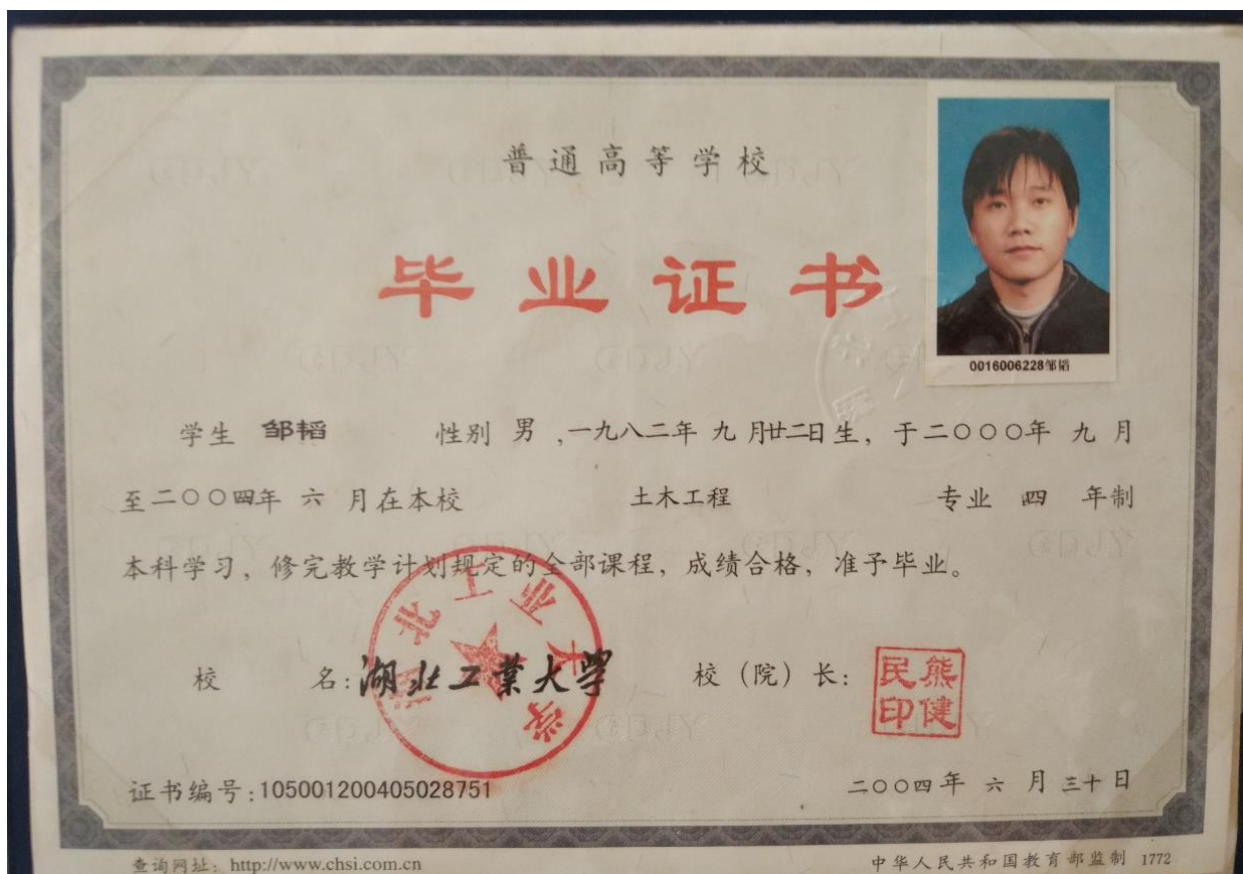 普通高等学校
毕业证书
0016006228邹韬
学生 邹韬 性别 男 ,一九八二年 九 月廿二日生, 于二〇〇〇年 九 月
至二〇〇四年 六 月在本校 土木工程 专业 四 年制
本科学习, 修完教学计划规定的全部课程, 成绩合格, 准予毕业。
校 名: 湖北工業大學 校(院)长: 熊健民印
湖北工业大学
证书编号:105001200405028751 二〇〇四年 六 月 三十日
查询网址: http://www.chsi.com.cn 中华人民共和国教育部监制 1772